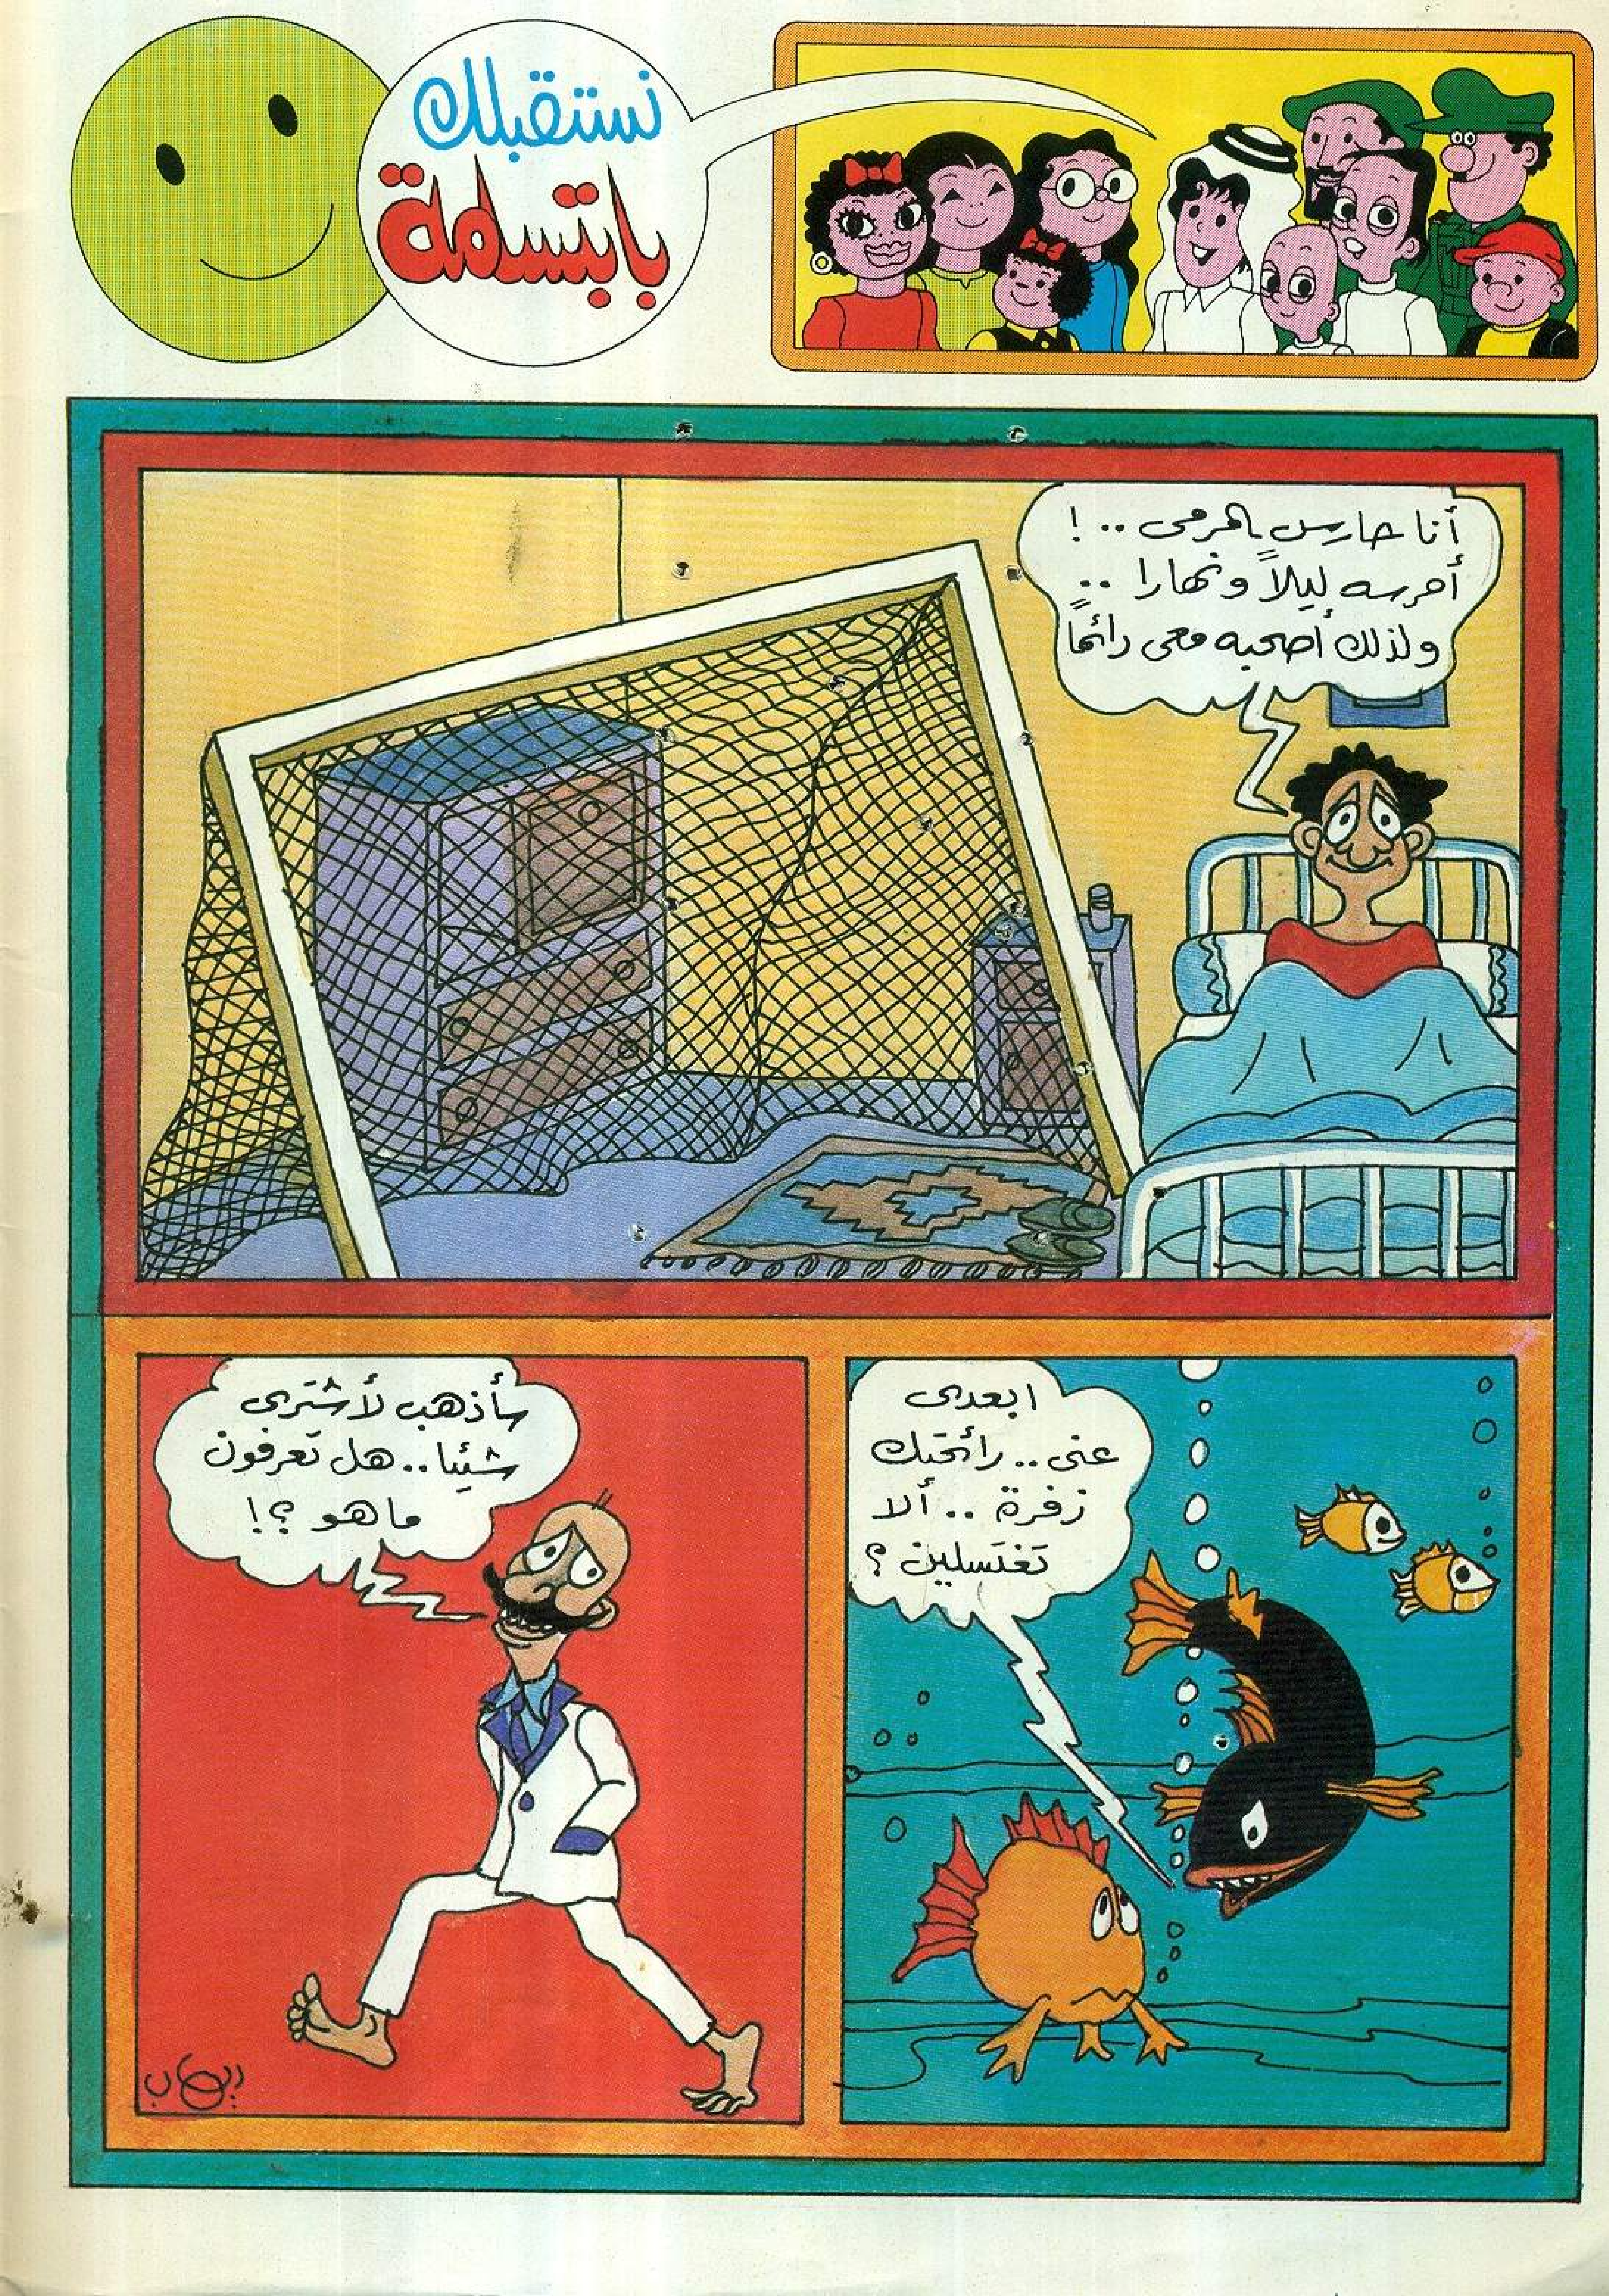 نستقبلك
بابتسامة
أنا حارس المرمى .. !
أحرسه ليلاً ونهارا ..
ولذلك أصحبه معى دائماً
ابعدى
عنى .. رائحتك
زفرة .. ألا
تغتسلين ؟
سأذهب لأشترى
شيئا .. هل تعرفون
ما هو ؟!